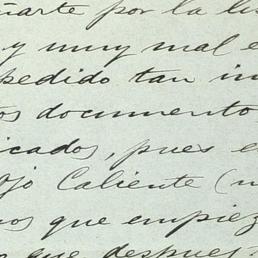 ñarte por la lis
y muy mal e
pedido tan in
os documento
icados, pues e
Ojo Caliente (
nos que empiez
que despues